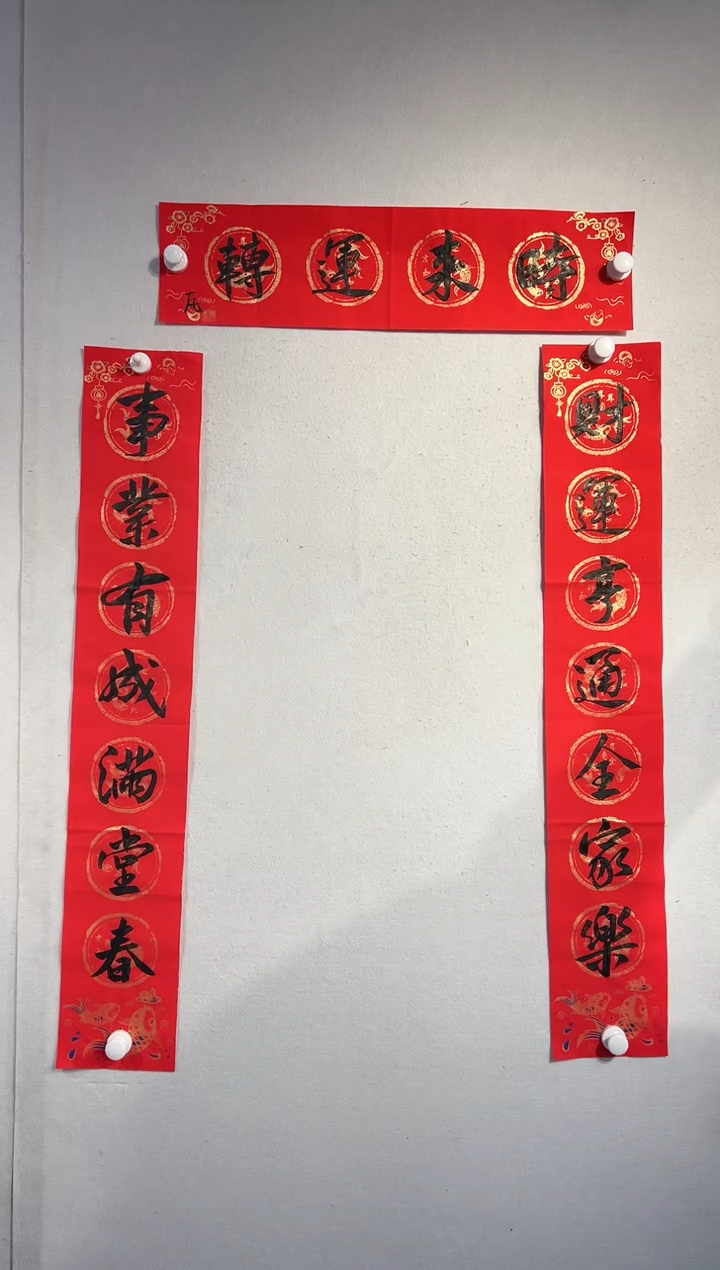 時來運轉
財運亨通全家樂
事業有成滿堂春